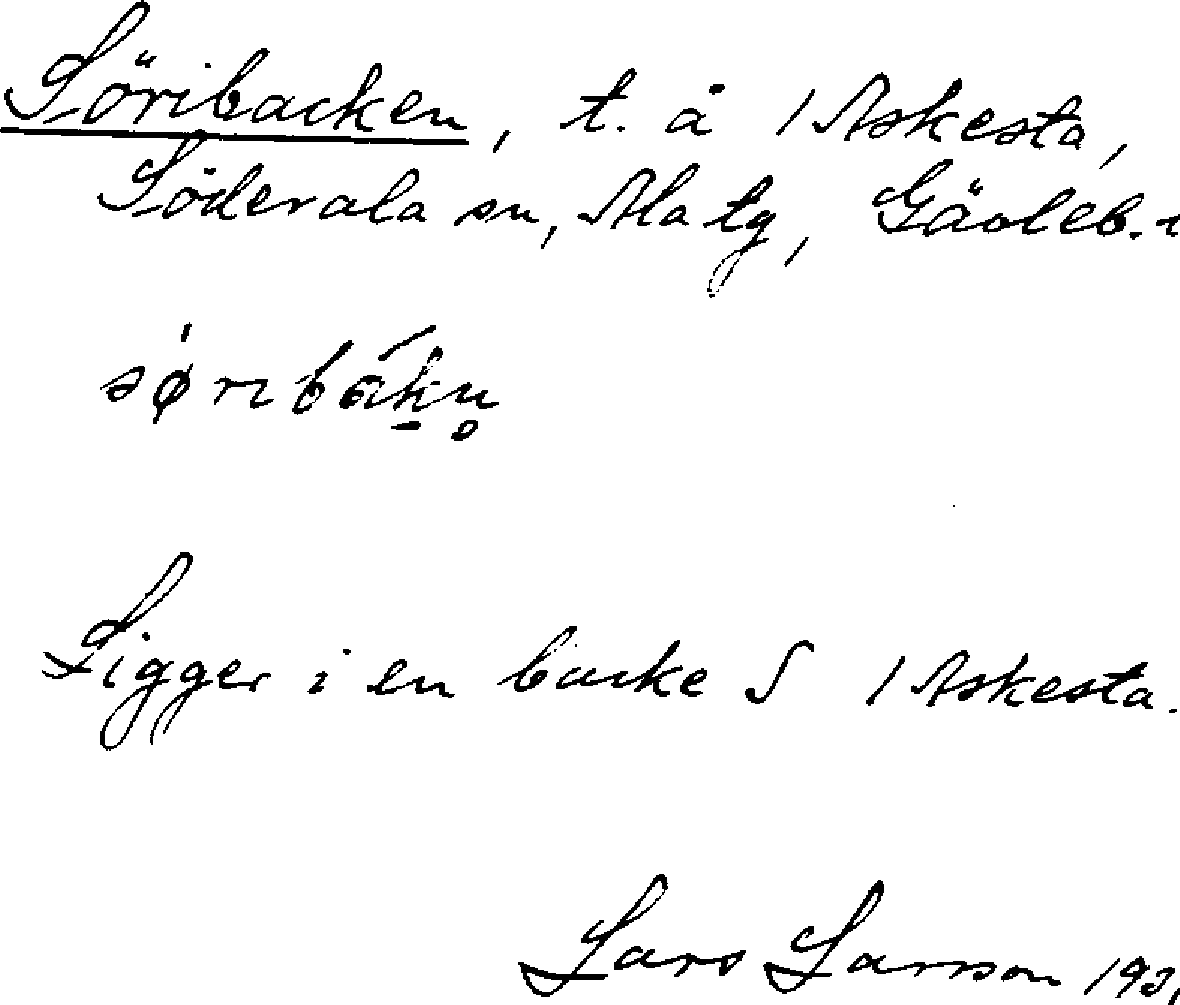 Söribacken, t. å 1 Askesta,
Söderala sn, Ala tg, Gävleb. l
søribákn̥
Ligger i en backe S 1 Askesta.
Lars Larsson 193